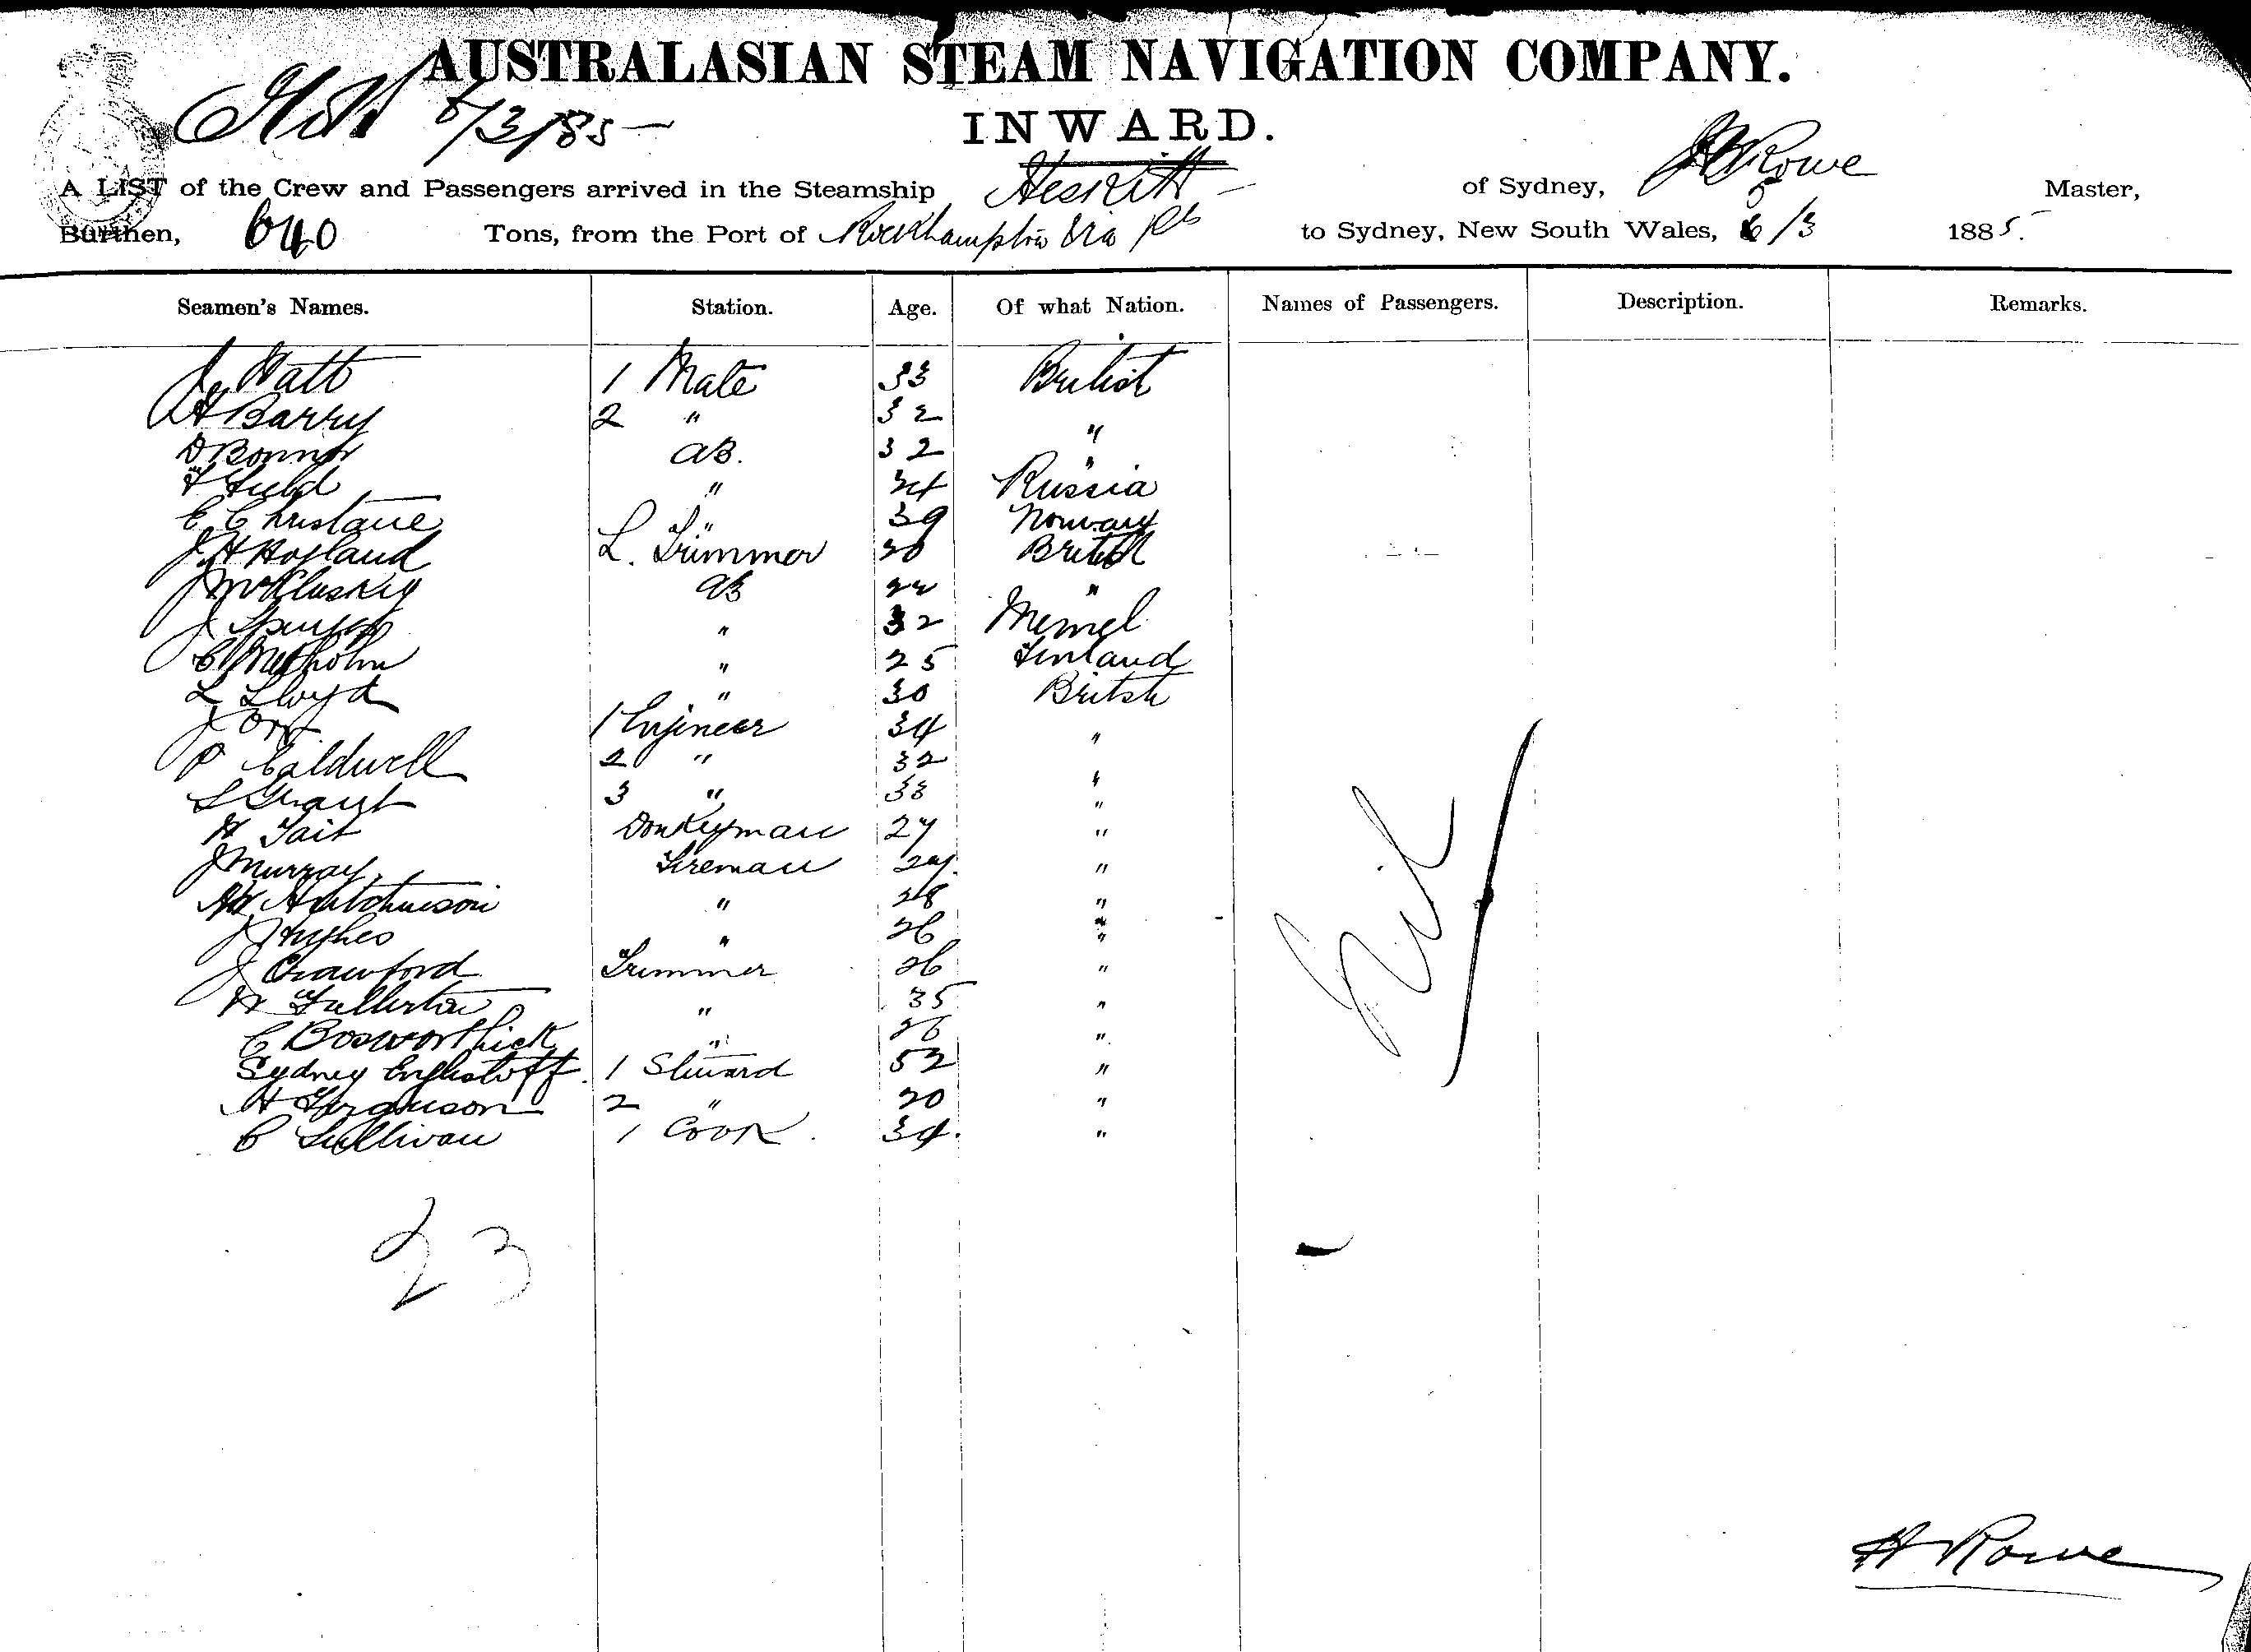 AUSTRALASIAN STEAM NAVIGATION COMPANY.
6/3/85
INWARD.
A LIST of the Crew and Passengers arrived in the Steamship of Sydney, Rowe Master,
Burthen, 640 Tons, from the Port of Rockhampton Via to Sydney, New South Wales, 6/3 1885.
Seamen's Names. Station. Age. Of what Nation. Names of Passengers. Description. Remarks.
Watt 1 Mate 33 British
Barry 2 " 32 "
D Bonnor AB. 32 "
F " 24 Russia
C " 39 Norway
J H L. Trimmer 20 British
J McKluskey AB 22 "
J " 32 Memel
C " 25 Finland
L Lloyd " 30 British
J Orr 1 Engineer 34 "
P Caldwell 2 " 32 "
S Grant 3 " 33 "
W Tait Donkeyman 27 "
J Murray Fireman "
Hutchinson " 28 "
J Hughes " 26 "
J Crawford Trimmer 26 "
W Fullerton " 35 "
C Bosworthick " 26 "
Sydney 1 Steward 52 "
H Ferguson 2 " 20 "
C Sullivan 1 Cook 34. "
Nil
23
H Rowe